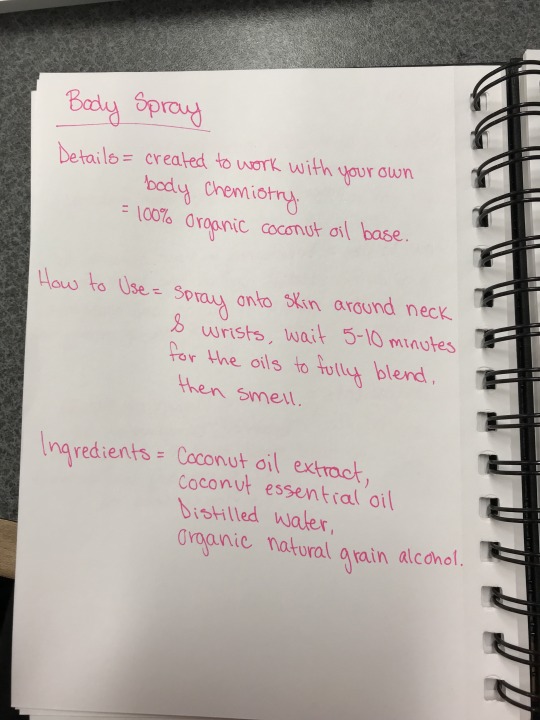 Body Spray
Details = created to work with your own
body chemistry.
= 100% organic coconut oil base.
How to Use = Spray onto skin around neck
& wrists, wait 5-10 minutes
for the oils to fully blend,
then smell.
Ingredients = Coconut oil extract,
coconut essential oil
Distilled water,
organic natural grain alcohol.